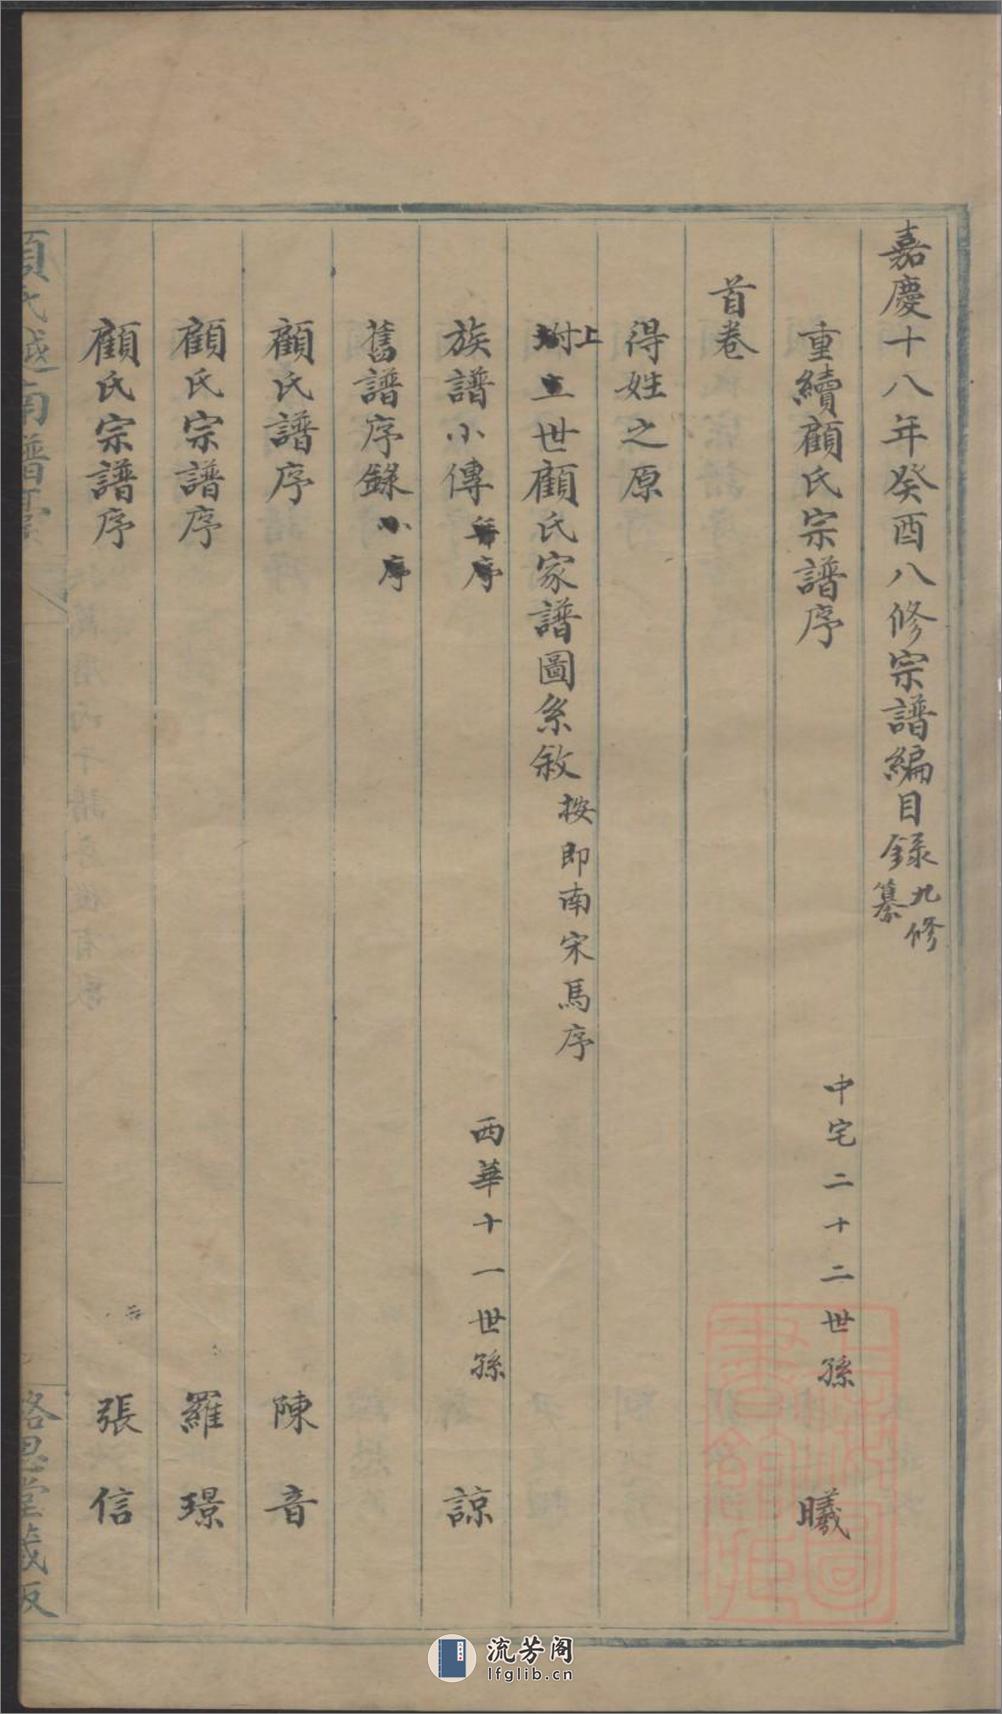 嘉慶十八年癸酉八修宗譜編目錄 九修纂
重續顧氏宗譜序 中宅二十二世孫 曦
首卷
得姓之原
附上世顧氏家譜圖系敘 按即南宋馬序
族譜小傳 序 西華十一世孫 諒
舊譜序錄 小序
顧氏譜序 陳音
顧氏宗譜序 羅璟
顧氏宗譜序 張信
氏越南譜
思堂藏板
流芳阁
lfglib.cn